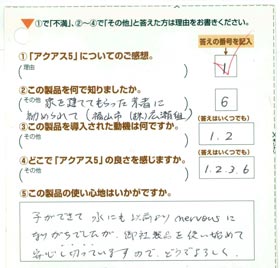 ①で「不満」、②~④で「その他」と答えた方は理由をお書きください。
答えの番号を記入
①「アクアス5」についてのご感想。
(理由
1
②この製品を何で知りましたか。
(その他 家を建てもらった業者に
勧められて(福山市 (株)広瀬組)
6
③この製品を導入された動機は何ですか。
(答えはいくつでも)
(その他
1.2
④どこで「アクアス5」の良さを感じますか。
(答えはいくつでも)
(その他
1.2.3.6
⑤この製品の使い心地はいかがですか。
子ができて 水にも以前よりnervousに
なりがちでしたが、御社製品を使い始めて
安心し切っていますので、どうぞよろしく。